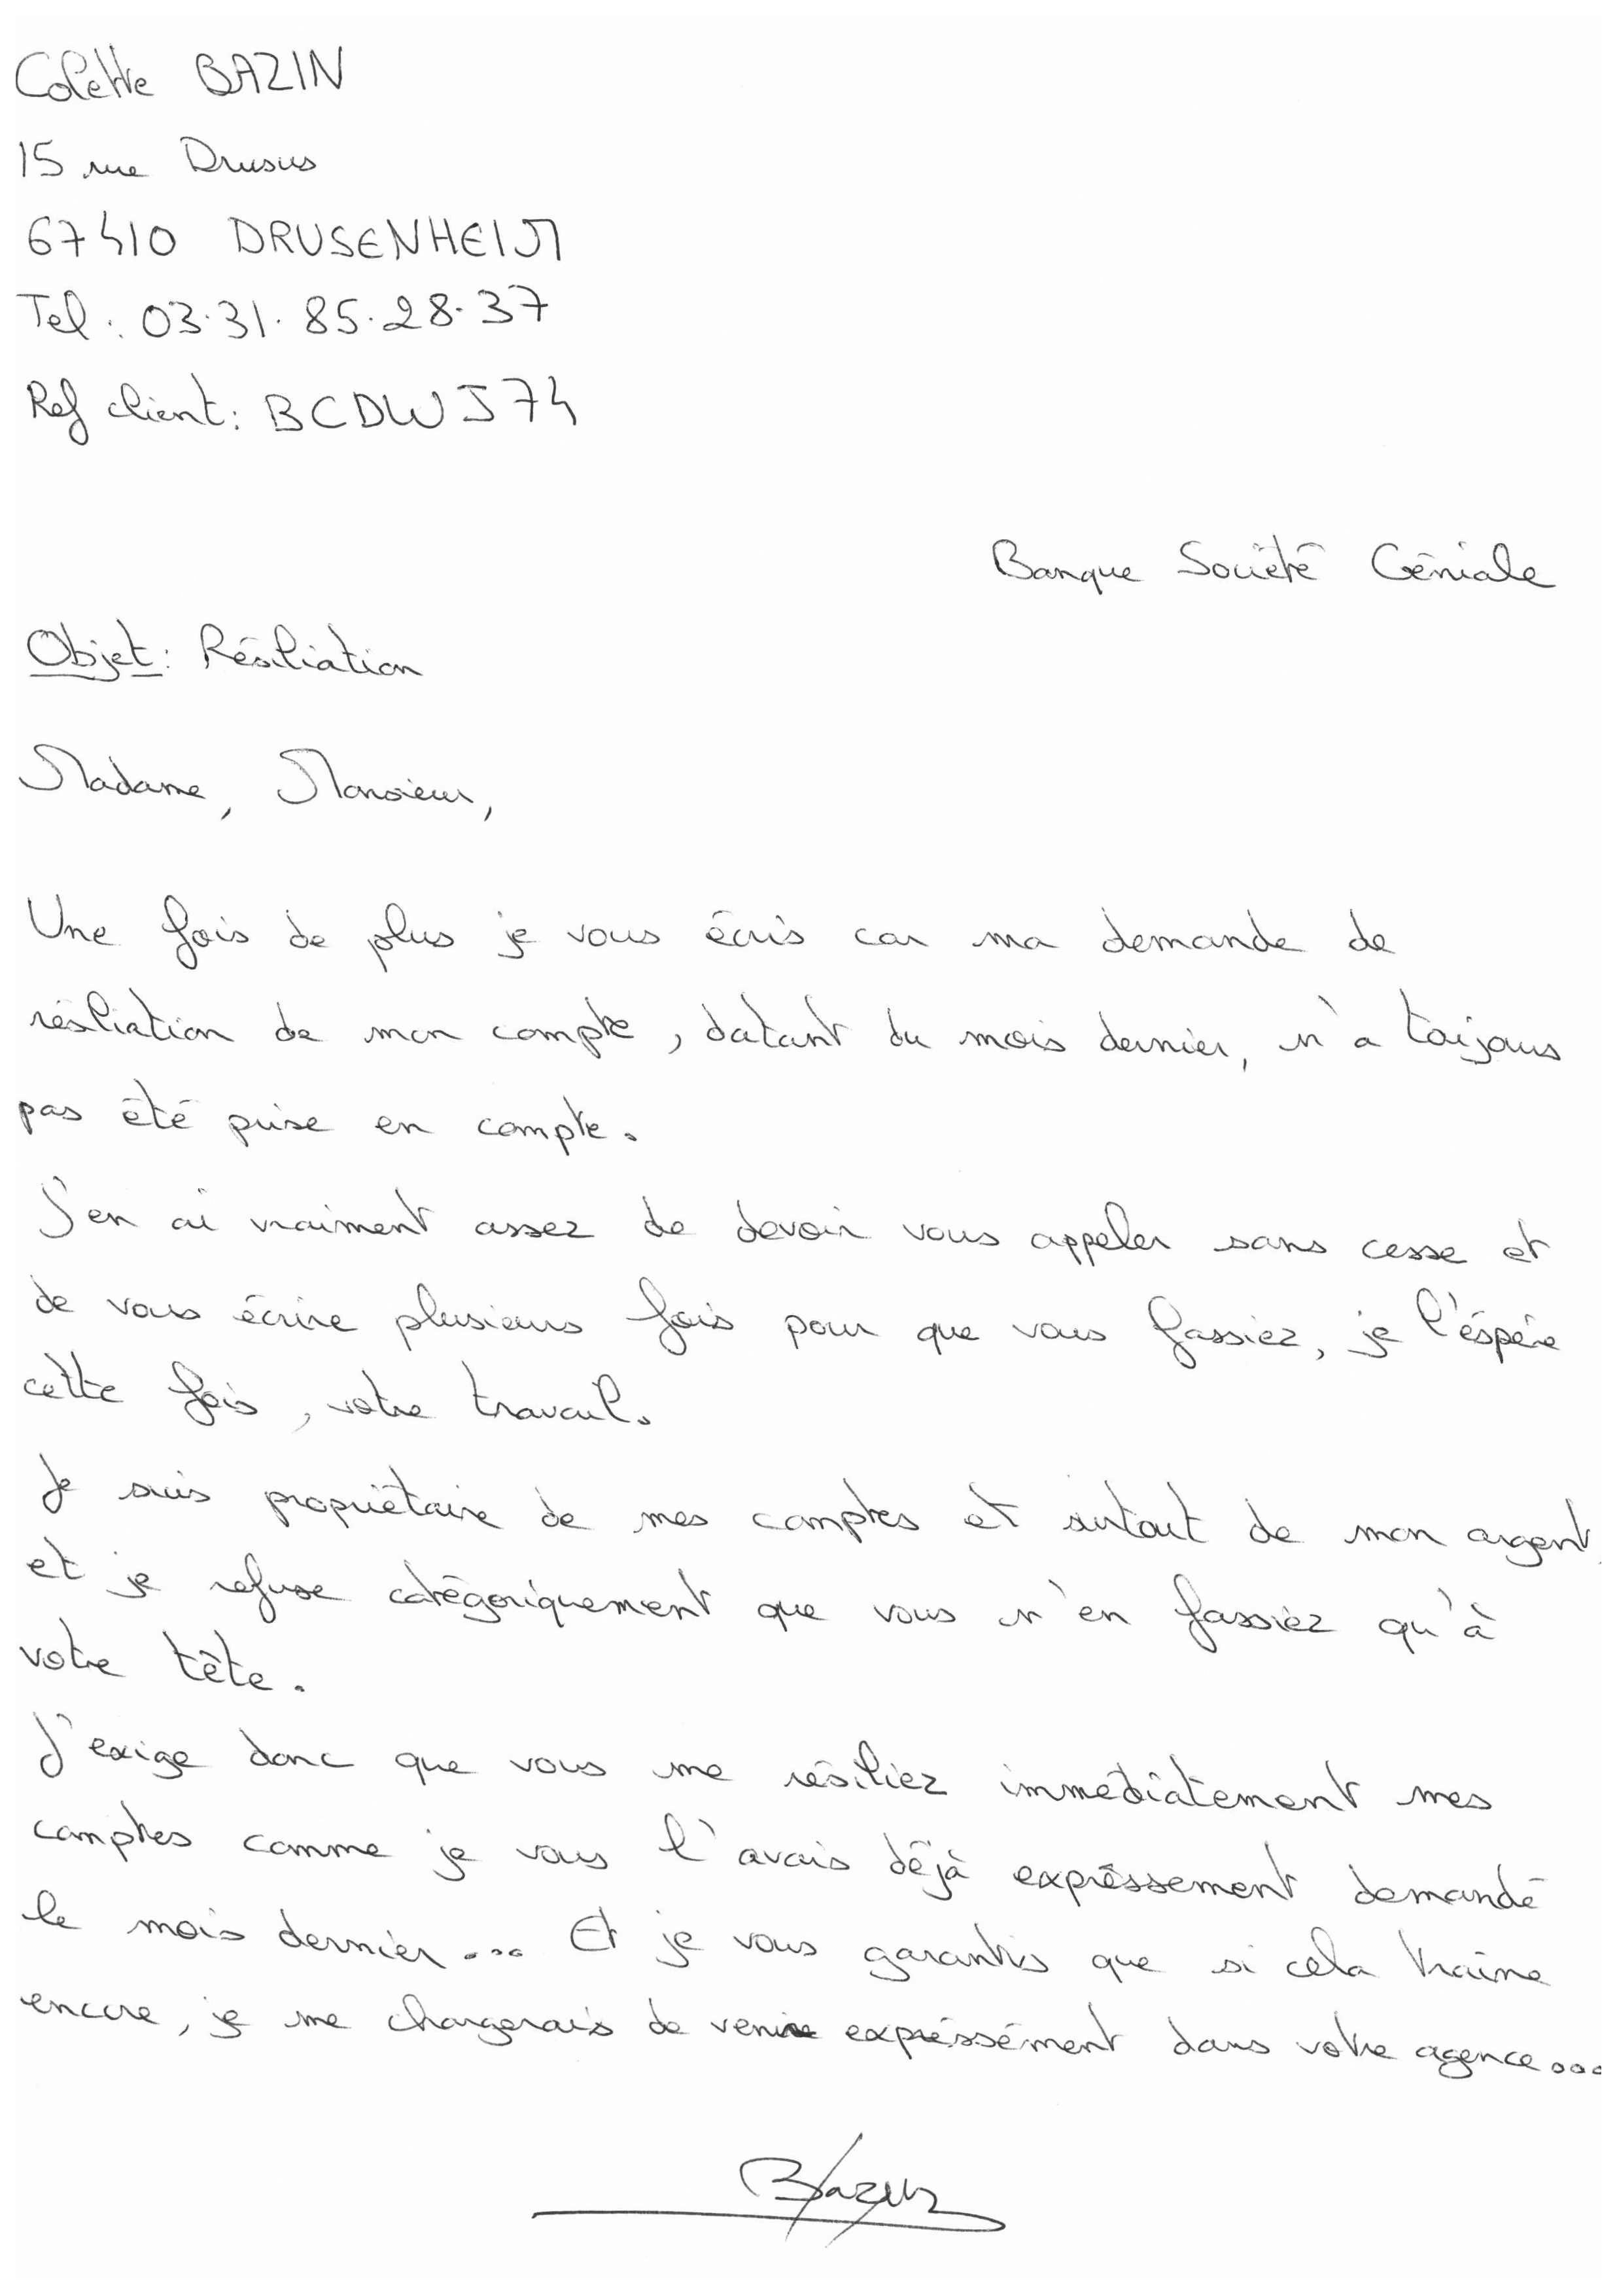 Colette BAZIN
15 rue Drusus
67410 DRUSENHEIM
Tel : 03.31.85.28.37
Ref client : BCDWJ74
Banque Société Géniale
Objet : Résiliation
Madame, Monsieur,
Une fois de plus je vous écris car ma demande de
résiliation de mon compte, datant du mois dernier, n'a toujours
pas été prise en compte.
J'en ai vraiment assez de devoir vous appeler sans cesse et
de vous écrire plusieurs fois pour que vous fassiez, je l'éspére
cette fois, votre travail.
Je suis propriétaire de mes comptes et surtout de mon argent
et je refuse catégoriquement que vous n'en fassiez qu'à
votre tête.
J'exige donc que vous me résiliez immédiatement mes
comptes comme je vous l'avais déjà expréssement demandé
le mois dernier... Et je vous garantis que si cela traine
encore, je me chargerais de venir expréssément dans votre agence...
Bazin